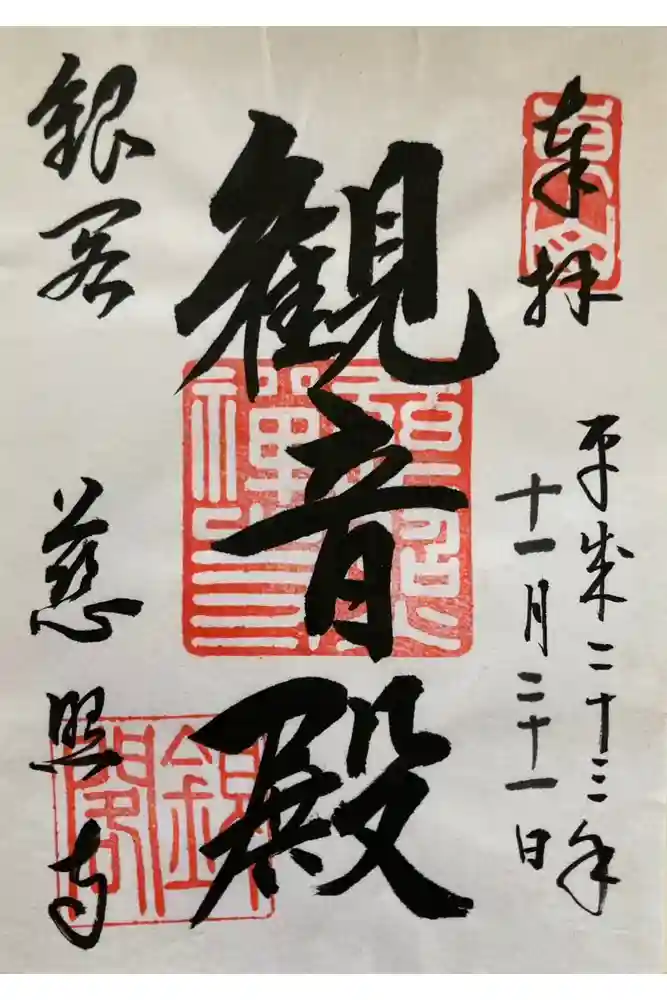 奉拝
平成二十三年
十一月二十一日
観音殿
銀閣
慈照寺
東山
慈照禅寺
銀閣